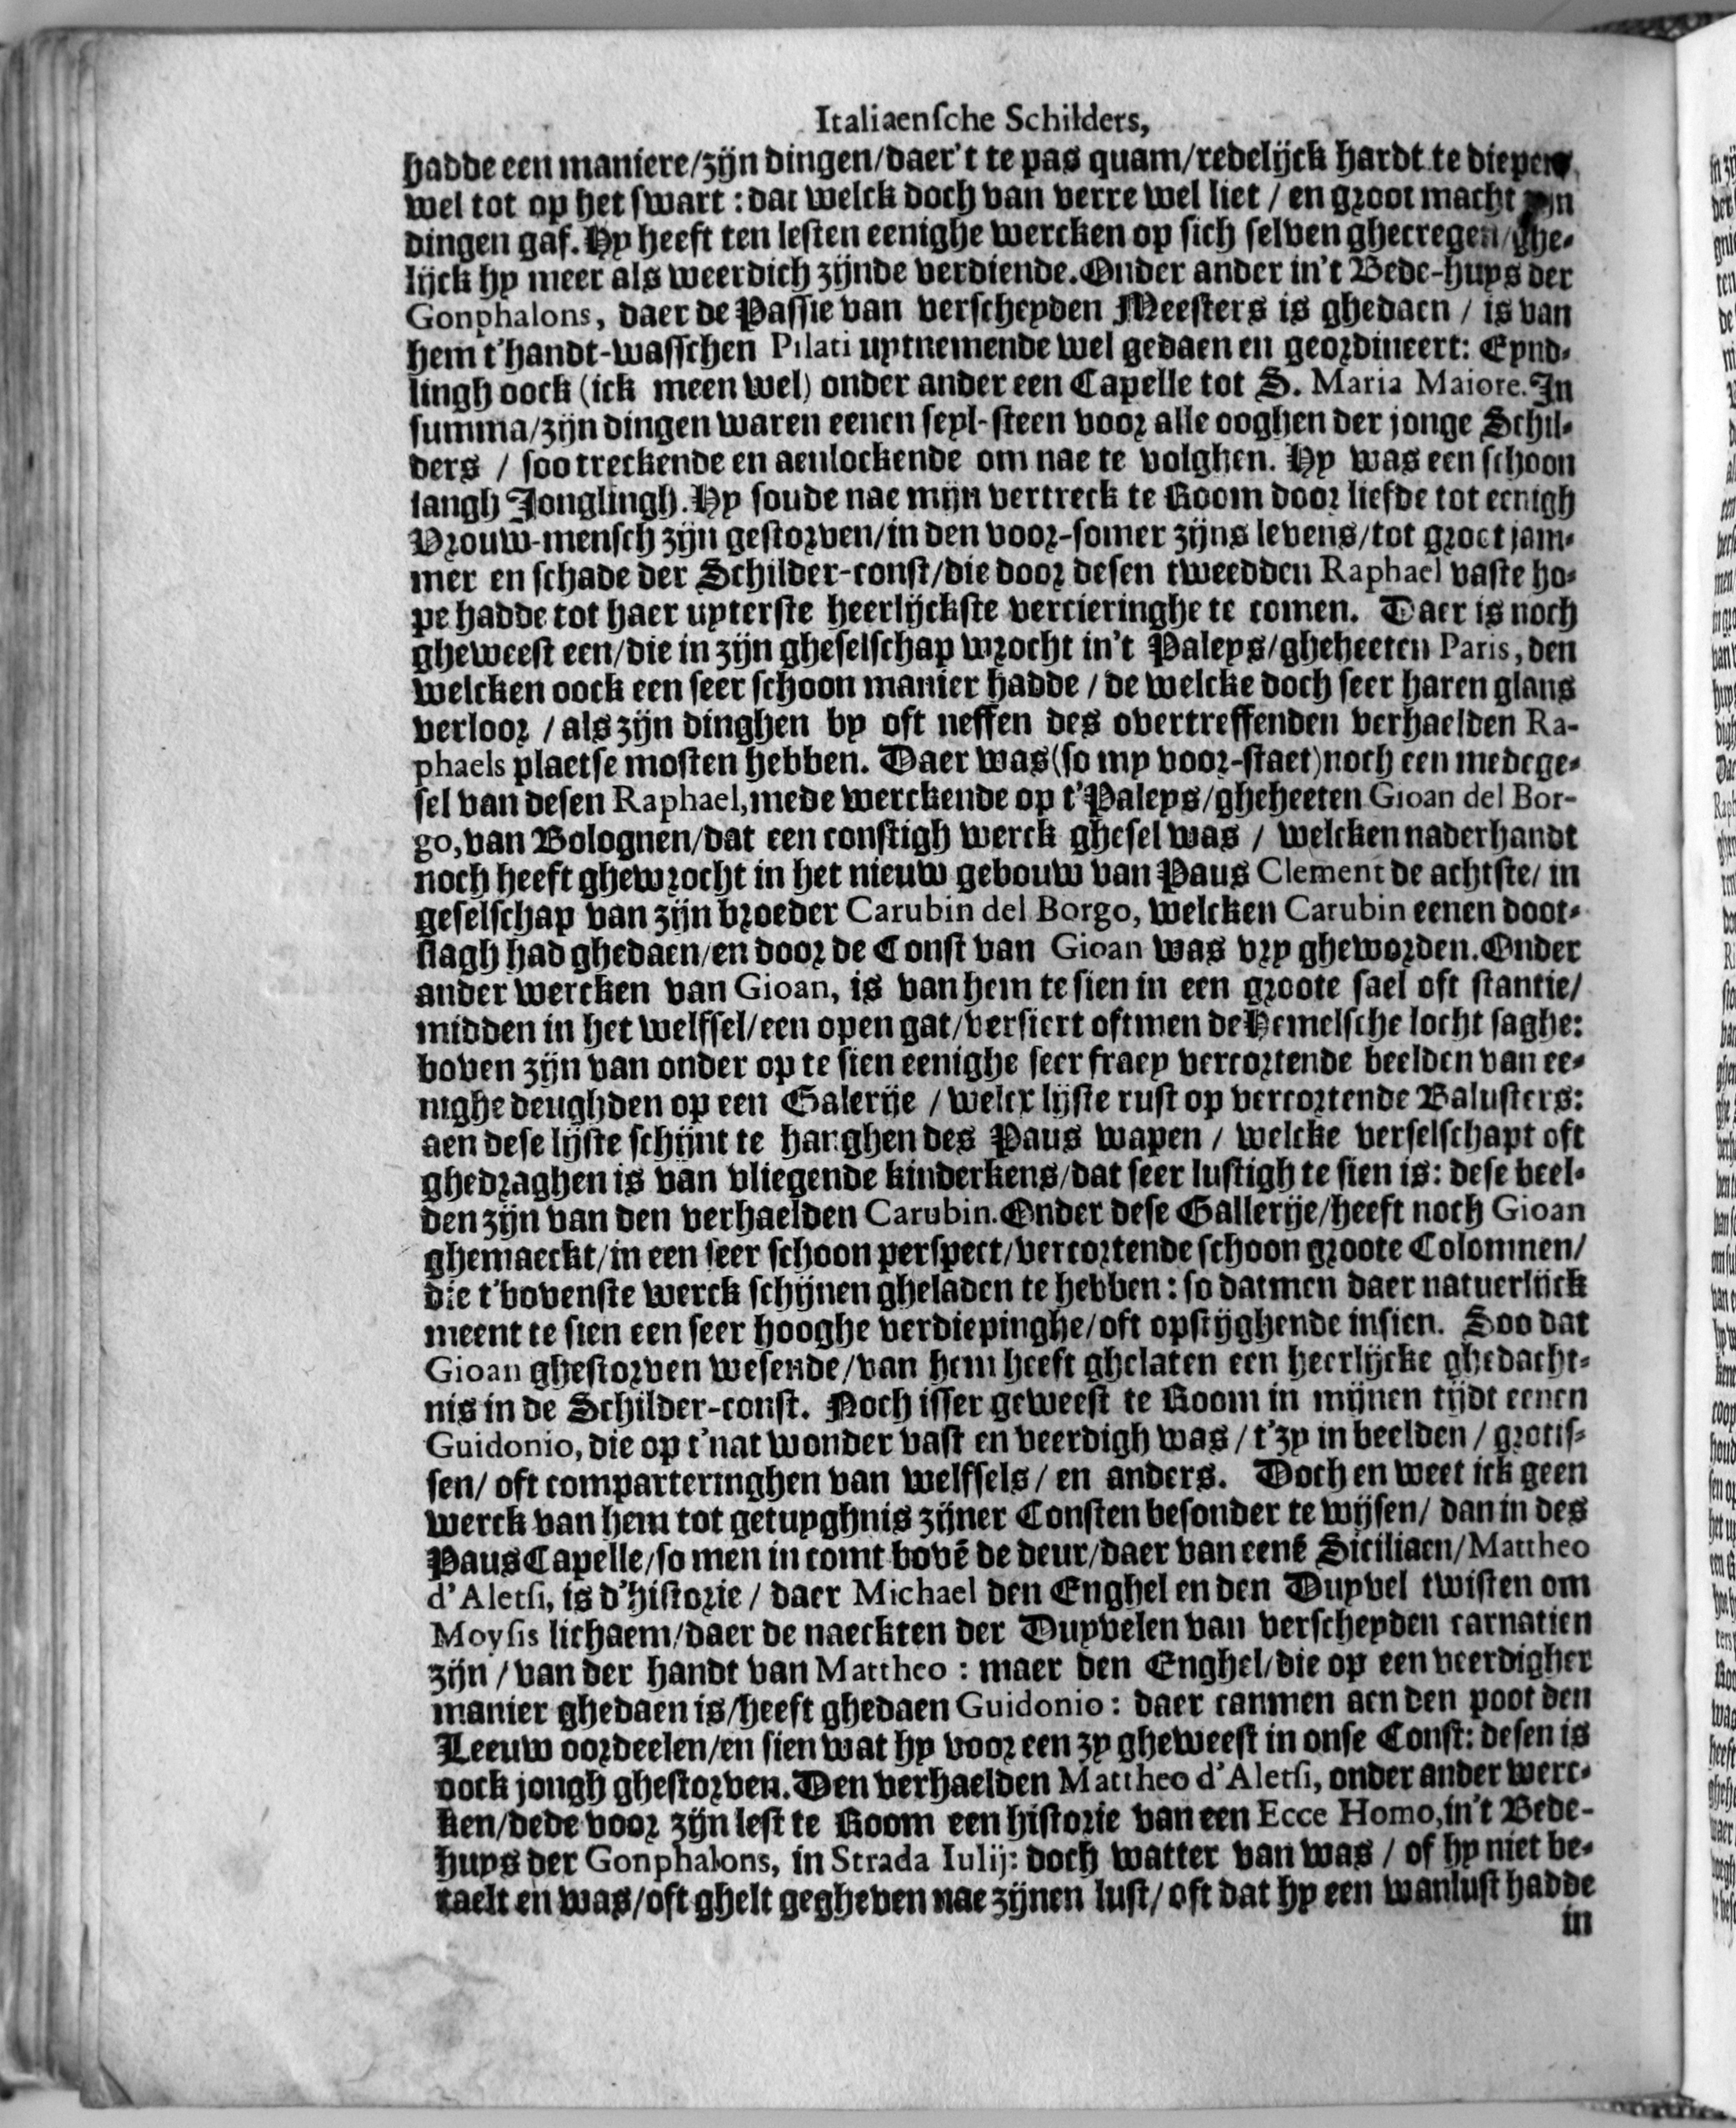 Italiaensche Schilders,
hadde een maniere/zijn dingen/daer't te pas quam/redelijck hardt te diepen
wel tot op het swart: dat welck doch van verre wel liet / en groot macht zijn
dingen gaf. Hy heeft ten lesten eenighe wercken op sich selven ghecregen/ghe-
lijck hy meer als weerdich zijnde verdiende. Onder ander in't Bede-huys der
Gonphalons, daer de Passie van verscheyden Meesters is ghedaen / is van
hem t'handt-wasschen Pilati uytnemende wel gedaen en geordineert: Eynd-
lingh oock (ick meen wel) onder ander een Capelle tot S. Maria Maiore. In
summa/zijn dingen waren eenen seyl-steen voor alle ooghen der jonge Schil-
ders / soo treckende en aenlockende om nae te volghen. Hy was een schoon
langh Jonglingh. Hy soude nae mijn vertreck te Room door liefde tot eenigh
Vrouw-mensch zijn gestorven/in den voor-somer zijns levens/tot groot jam-
mer en schade der Schilder-const/die door desen tweedden Raphael vaste ho-
pe hadde tot haer uyterste heerlijckste vercieringhe te comen. Daer is noch
gheweest een/die in zijn gheselschap wrocht in't Paleys/gheheeten Paris, den
welcken oock een seer schoon manier hadde / de welcke doch seer haren glans
verloor / als zijn dinghen by oft neffen des overtreffenden verhaelden Ra-
phaels plaetse mosten hebben. Daer was (so my voor-staet) noch een medege-
sel van desen Raphael, mede werckende op t'Paleys/gheheeten Gioan del Bor-
go, van Bolognen/dat een constigh werck ghesel was / welcken naderhandt
noch heeft ghewrocht in het nieuw gebouw van Paus Clement de achtste/ in
geselschap van zijn broeder Carubin del Borgo, welcken Carubin eenen doot-
slagh had ghedaen/en door de Const van Gioan was vry gheworden. Onder
ander wercken van Gioan, is van hem te sien in een groote sael oft stantie/
midden in het welfsel/een open gat/versiert oftmen de Hemelsche locht saghe:
boven zijn van onder op te sien eenighe seer fraey vercortende beelden van ee-
nighe deughden op een Galerije / welcx lijste rust op vercortende Balusters:
aen dese lijste schijnt te hanghen des Paus wapen / welcke verselschapt oft
ghedraghen is van vliegende kinderkens/dat seer lustigh te sien is: dese beel-
den zijn van den verhaelden Carubin. Onder dese Gallerije/heeft noch Gioan
ghemaeckt/in een seer schoon perspect/vercortende schoon groote Colomnen/
die t'bovenste werck schijnen gheladen te hebben: so datmen daer natuerlijck
meent te sien een seer hooghe verdiepinghe/oft opstijghende insien. Soo dat
Gioan ghestorven wesende/van hem heeft ghelaten een heerlijcke ghedacht-
nis in de Schilder-const. Noch isser geweest te Room in mijnen tijdt eenen
Guidonio, die op t'nat wonder vast en veerdigh was / t'zy in beelden / grotis-
sen/ oft comparteringhen van welfsels / en anders. Doch en weet ick geen
werck van hem tot getuyghnis zijner Consten besonder te wijsen/ dan in des
Paus Capelle/so men in comt bovē de deur/daer van eenē Siciliaen/Mattheo
d'Aletsi, is d'historie / daer Michael den Enghel en den Duyvel twisten om
Moysis lichaem/daer de naeckten der Duyvelen van verscheyden carnatien
zijn / van der handt van Mattheo : maer den Enghel/die op een veerdigher
manier ghedaen is/heeft ghedaen Guidonio : daer canmen aen den poot den
Leeuw oordeelen/en sien wat hy voor een zy gheweest in onse Const: desen is
oock jongh ghestorven. Den verhaelden Mattheo d'Aletsi, onder ander werc-
ken/dede voor zijn lest te Room een historie van een Ecce Homo, in't Bede-
huys der Gonphalons, in Strada Iulij: doch watter van was / of hy niet be-
taelt en was/oft ghelt gegheven nae zijnen lust/ oft dat hy een wanlust hadde
in